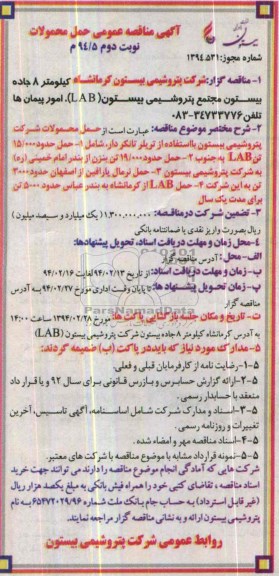 آگهی مناقصه عمومی حمل محمولات
نوبت دوم ۹۴/۵ م
شماره مجوز: ۱۳۹۴.۵۳۱
۱- مناقصه گزار: شرکت پتروشیمی بیستون کرمانشاه کیلومتر ۸ جاده
بیستون مجتمع پتروشیمی بیستون (LAB)، امور پیمان ها
تلفن ۳۴۷۳۳۷۷۶-۰۸۳
۲- شرح مختصر موضوع مناقصه: عبارت است از حمل محمولات شرکت
پتروشیمی بیستون بااستفاده از تریلر تانکر دار، شامل ۱- حمل حدود۱۵/۰۰۰
تن LAB به جنوب ۲- حمل حدود۱۹/۰۰۰ تن بنزن از بندر امام خمینی (ره)
به شرکت پتروشیمی بیستون ۳- حمل نرمال پارافین از اصفهان حدود۳۰۰۰
تن به این شرکت ۴- حمل LAB از کرمانشاه به بندر عباس حدود ۵۰۰۰ تن
برای مدت یک سال
۳- تضمین شرکت درمناقصه: ۱,۳۰۰,۰۰۰,۰۰۰ (یک میلیارد و سیصد میلیون)
ریال بصورت واریز نقدی یا ضمانتنامه بانکی
۴- محل زمان و مهلت دریافت اسناد، تحویل پیشنهادها:
الف- محل: آدرس مناقصه گزار
ب- زمان و مهلت دریافت اسناد: از تاریخ ۹۴/۰۲/۱۳ لغایت ۹۴/۰۲/۱۶
پ- زمان تحویل پیشنهاد ها: تا پایان وقت اداری مورخ ۹۴/۰۲/۲۷ به آدرس
مناقصه گزار
ت- تاریخ و مکان جلسه بازگشایی پاکت ها: مورخ ۱۳۹۴/۰۲/۲۸ ساعت ۱۴:۰۰
به آدرس کرمانشاه کیلومتر ۸ جاده بیستون شرکت پتروشیمی بیستون (LAB)
۵- مدارک مورد نیاز که باید در پاکت (ب) ضمیمه گردند:
۵-۱- رضایت نامه از کارفرمایان قبلی و فعلی.
۵-۲- ارائه گزارش حسابرس و بازرس قانونی برای سال ۹۲ و یا قرار داد
منعقد با حسابدار رسمی.
۵-۳- اسناد و مدارک شرکت شامل اساسنامه، آگهی تاسیس، آخرین
تغییرات و روزنامه رسمی.
۵-۴- اسناد مناقصه مهر و امضاء شده.
۵-۵- نمونه قرارداد مشابه با موضوع مناقصه با شرکت های معتبر.
شرکت هایی که آمادگی انجام موضوع مناقصه را دارند می توانند جهت خرید
اسناد مناقصه، تقاضای کتبی خود را همراه فیش بانکی به مبلغ یکصد هزار ریال
(غیر قابل استرداد) به حساب جام بانک ملت شماره ۶۵۴۷۲۰۲۹/۹۶ به نام
پتروشیمی بیستون ارائه و به نشانی مناقصه گزار مراجعه نمایند.
روابط عمومی شرکت پتروشیمی بیستون